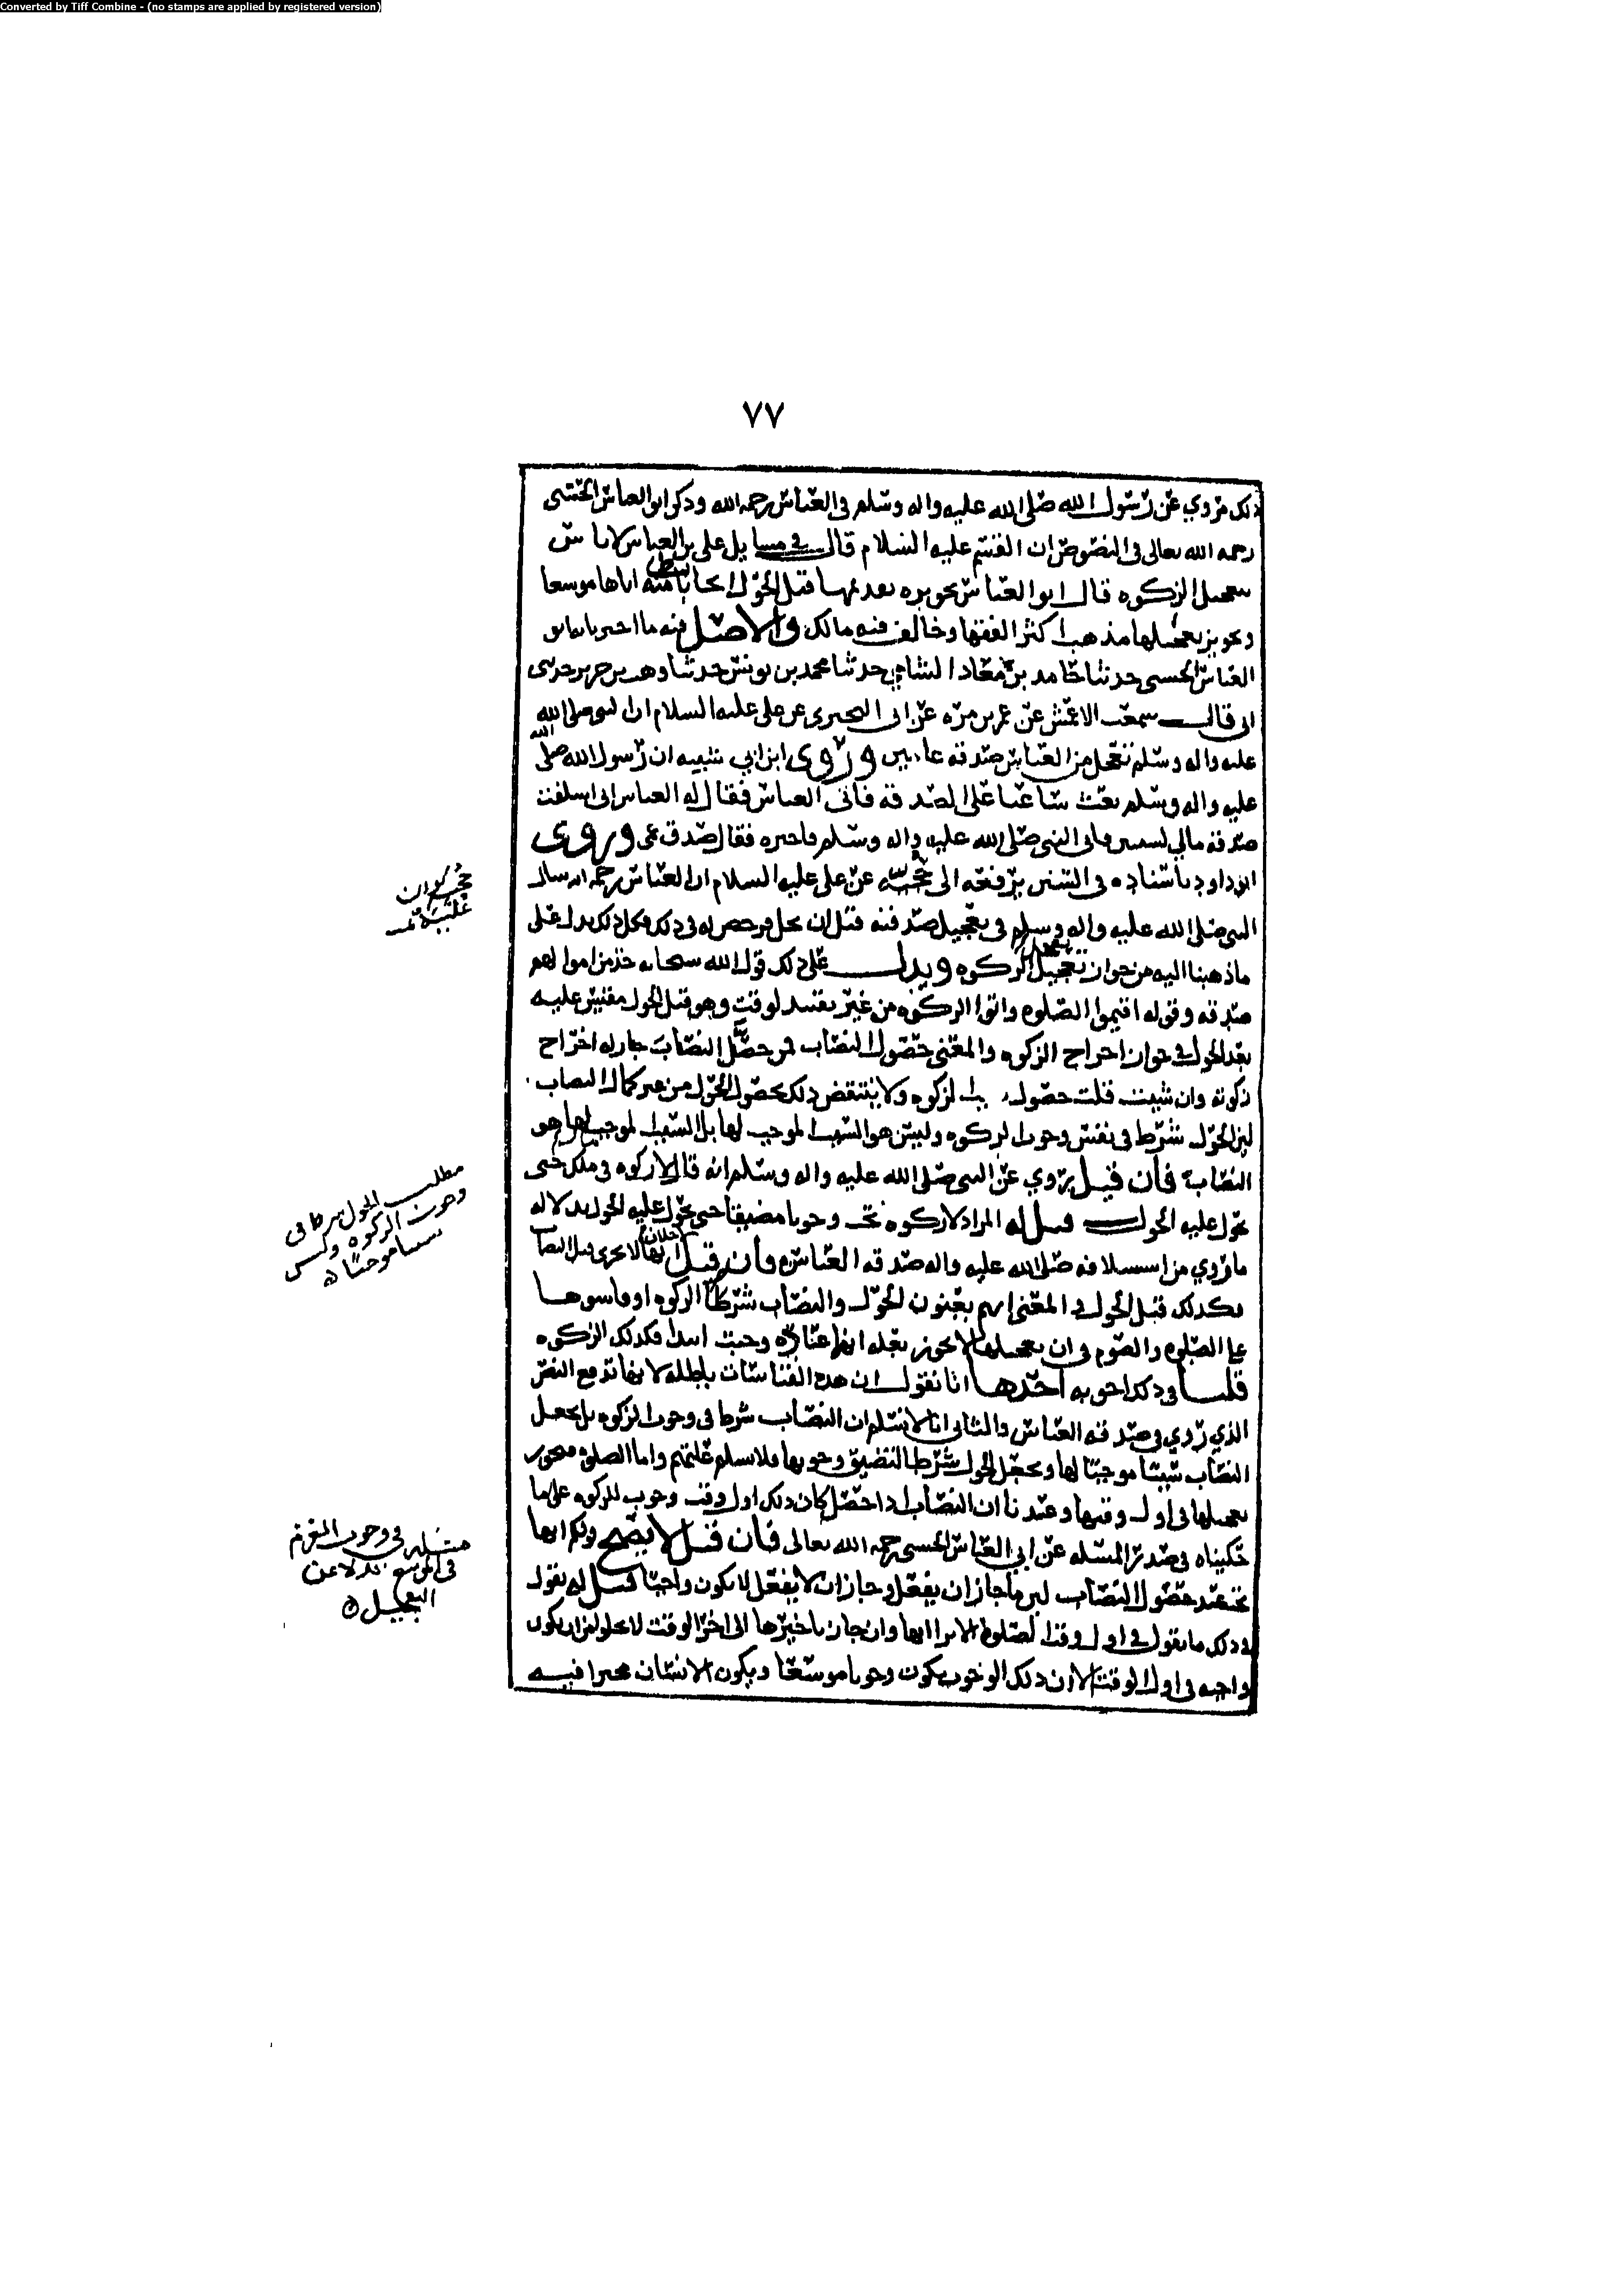 Converted by Tiff Combine - (no stamps are applied by registered version)
٧٧
ذلك مروي عن رسول الله صلى الله عليه واله وسلم في العباس رحمه الله وذكر ابو العباس الحسني
رحمه الله تعالى في النصوص ان القسم عليه السلام قال في مسايل علي بن العباس لا باس
بتعجيل الزكوة قال ابو العباس تجويزه تقديمها قبل الحول ايجابا منه اياها موسعا
وتجويز تعجيلها مذهب اكثر الفقها وخالف فيه مالك والاصل فيه ما اخبرنا ابو
العباس الحسني حدثنا حامد بن معاد الشامي حدثنا محمد بن يونس حدثنا وهب بن جرير حدثني
ابي قال سمعت الاعمش عن عمر بن مره عن ابي البختري عن علي عليه السلام ان النبي صلى الله
عليه واله وسلم تعجل من العباس صدقه عامين وروى ابن ابي شيبه ان رسول الله صلى الله
عليه واله وسلم بعث ساعيا على الصدقه فاتى العباس فقال له العباس اني اسلفت
صدقه مالي لسنتين فاتى النبي صلى الله عليه واله وسلم فاخبره فقال صدق عمي وروى
ابو داود باسناده في السنن يرفعه الى حجيه عن علي عليه السلام ان العباس رحمه الله سال
النبي صلى الله عليه واله وسلم في تعجيل صدقته قبل ان تحل فرخص له في ذلك فكل ذلك يدل على
ما ذهبنا اليه من جواز تعجيل الزكوه ويدل على ذلك قول الله سبحانه خذ من اموالهم
صدقه وقوله اقيموا الصلوه واتوا الزكوه من غير تقييد لوقت وهو قبل الحول مقيس عليه
بعد الحول في جواز اخراج الزكوه والمعنى حصول النصاب فمن حصل النصاب جاز له اخراج
زكوته وان شيت قلت حصول الزكوه ولا ينتقض ذلك بحصول الحول من غير كمال النصاب
لان الحول شرط في نفس وجوب الزكوه وليس هو السبب الموجب لها بل السبب الموجب لها هو
النصاب فان قيل روي عن النبي صلى الله عليه واله وسلم انه قال لا زكوه في ملك حتى
يحول عليه الحول قيل له المراد لا زكوه تجب وجوبا مضيقا حتى يحول عليه الحول بدلاله
ما روي من استسلافه صلى الله عليه واله صدقه العباس فان قيل انها لا تجزي قبل النصاب
فكذلك قبل الحول والمعنى انهم يعنون الحول والنصاب شرطا الزكوه او قاسوها
على الصلوه والصوم في ان تعجيلها لا يجوز بعله انها عباده وجبت ابتدا فكذلك الزكوه
قلنا في ذلك اجوبه احدها انا نقول ان هذه القياسات باطله لانها تدفع النص
الذي روي في صدقه العباس والثاني انا لا نسلم ان النصاب شرط في وجوب الزكوه بل نجعل
النصاب سببا موجبا لها ونجعل الحول شرطا لتضيق وجوبها فلا نسلم علتهم واما الصلوه فيجوز
تعجيلها في اول وقتها وعندنا ان النصاب اذا حصل كان ذلك اول وقت وجوب الزكوه على ما
حكيناه في صدر المسله عن ابي العباس الحسني رحمه الله تعالى فان قيل لا يصح قولكم انها
تجب عند حصول النصاب لان ما جاز ان يفعل وجاز ان لا يفعل لا يكون واجبا قيل له نقول
في ذلك ما نقول في اول وقت الصلوه الا ترى انها وان جاز تاخيرها الى اخر الوقت لا تخلو من ان تكون
واجبه في اول الوقت الا ان ذلك الوجوب يكون وجوبا موسعا ويكون الانسان مخيرا فيه
مطلب الحول شرط في
وجوب الزكوه وليس
سببا موجبا
مسئله في وجوب العزم
في الموسع بدلا عن
التعجيل